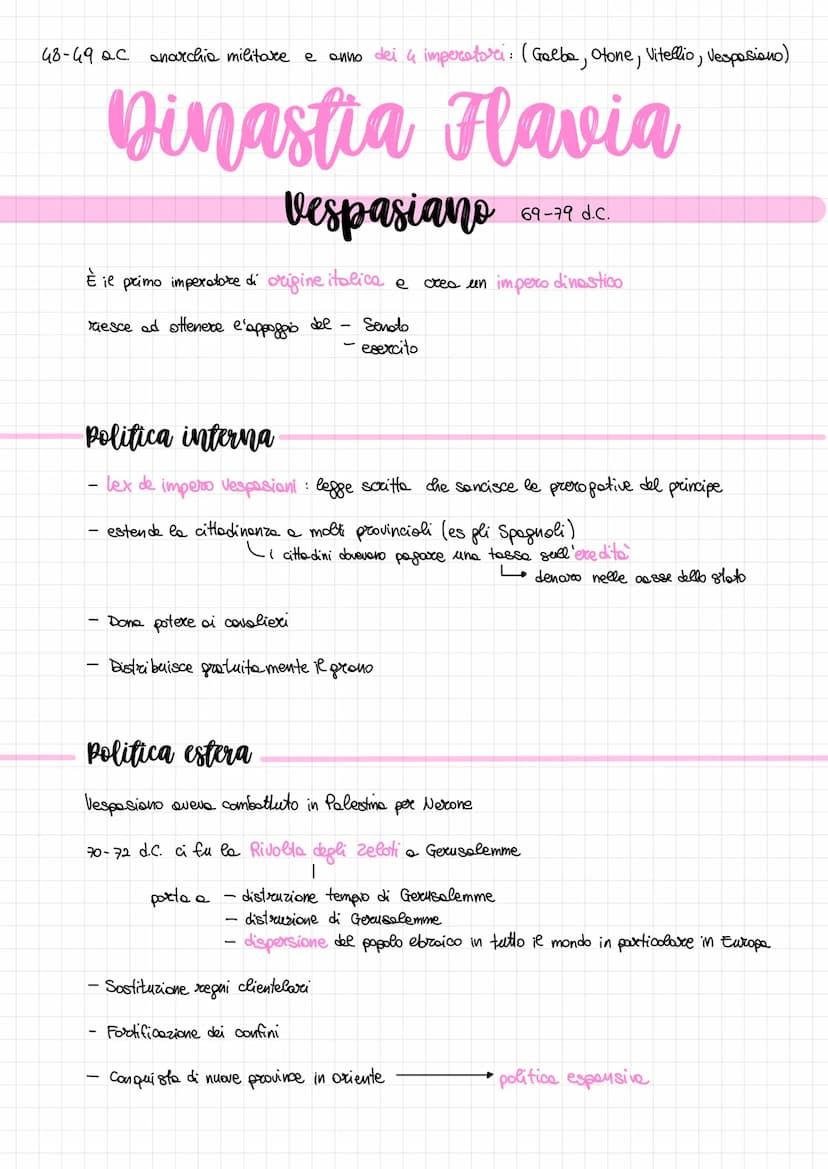 48-49 a.C. anarchia militare e anno dei 4 imperatori: (Galba, Otone, Vitellio, Vespasiano)
Dinastia Flavia
Vespasiano 69-79 d.C.
È il primo imperatore di origine italica e crea un impero dinastico
riesce ad ottenere l'appoggio del - Senato
- esercito
Politica interna
- lex de impero vespasiani : legge scritta che sancisce le prerogative del principe
- estende la cittadinanza a molti provinciali (es gli Spagnoli)
i cittadini dovevano pagare una tassa sull'eredità
denaro nelle casse dello stato
- Dona potere ai cavalieri
- Distribuisce gratuitamente il grano
Politica estera
Vespasiano aveva combattuto in Palestina per Nerone
70-72 d.C. ci fu la Rivolta degli Zeloti a Gerusalemme
porta a - distruzione tempio di Gerusalemme
- distruzione di Gerusalemme
- dispersione del popolo ebraico in tutto il mondo in particolare in Europa
- Sostituzione regni clientelari
- Fortificazione dei confini
- Conquista di nuove province in oriente → politica espansiva